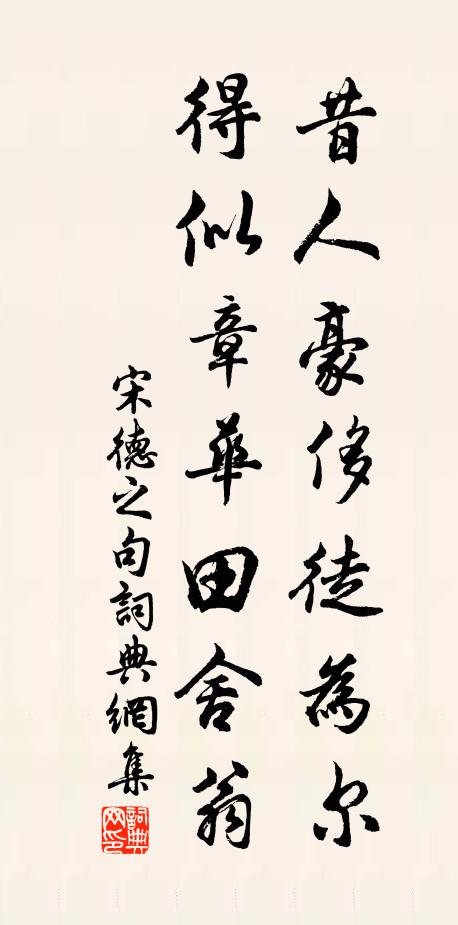 昔人豪侈徒為尔
得似章華田舍翁
宋德之句詞典網集
詞典网印